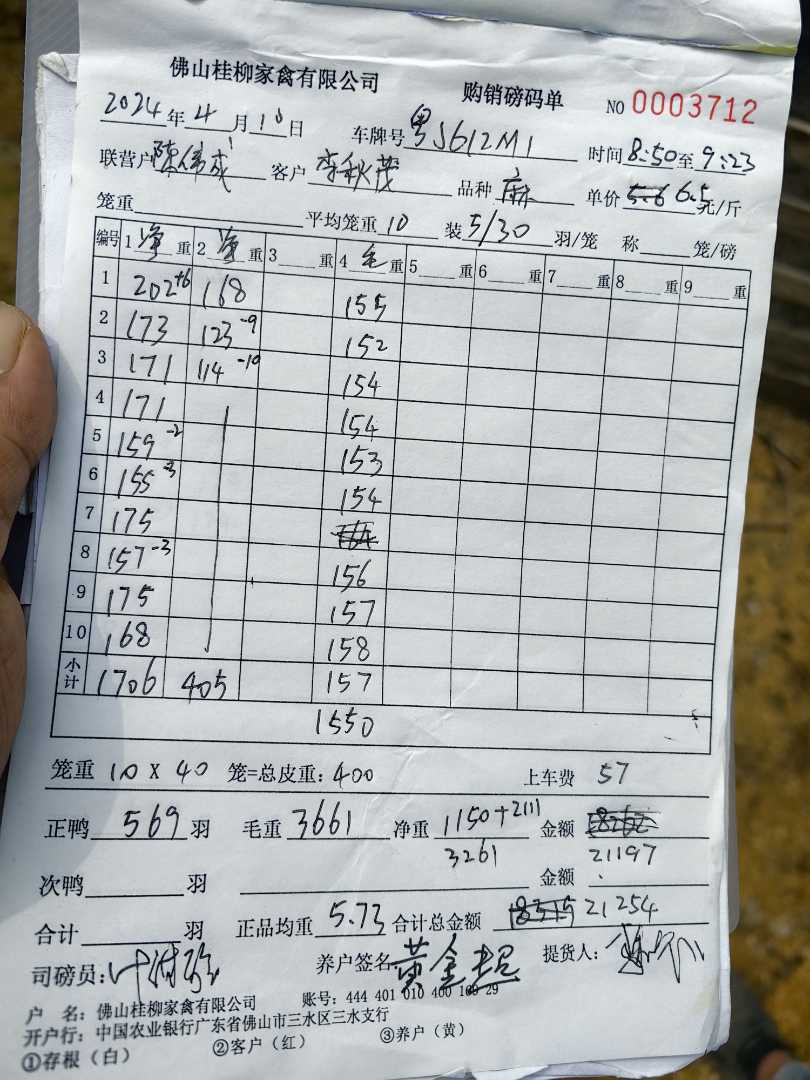 佛山桂柳家禽有限公司 购销磅码单 NO 0003712
2024年4月10日 车牌号 粤J612M1 时间 8:50至9:23
联营户 陈伟成 客户 李秋茂 品种 麻 单价 5.6 6.5 元/斤
笼重 平均笼重 10 装 5/30 羽/笼 称 笼/磅
编号 1 净 重 2 净 重 3 重 4 毛 重 5 重 6 重 7 重 8 重 9 重
1 202 +6 168 155
2 173 123 -9 152
3 171 114 -10 154
4 171 154
5 159 -2 153
6 155 -3 154
7 175
8 157 -3 156
9 175 157
10 168 158
小计 1706 405 157
1550
笼重 10 X 40 笼=总皮重: 400 上车费 57
正鸭 569 羽 毛重 3661 净重 1150+2111 金额
3261 21197
次鸭 羽 金额
合计 羽 正品均重 5.73 合计总金额 18315 21254
司磅员: 养户签名 黄金超 提货人:
户 名: 佛山桂柳家禽有限公司 账号: 444 401 010 400 169 29
开户行: 中国农业银行广东省佛山市三水区三水支行
①存根(白) ②客户(红) ③养户(黄)